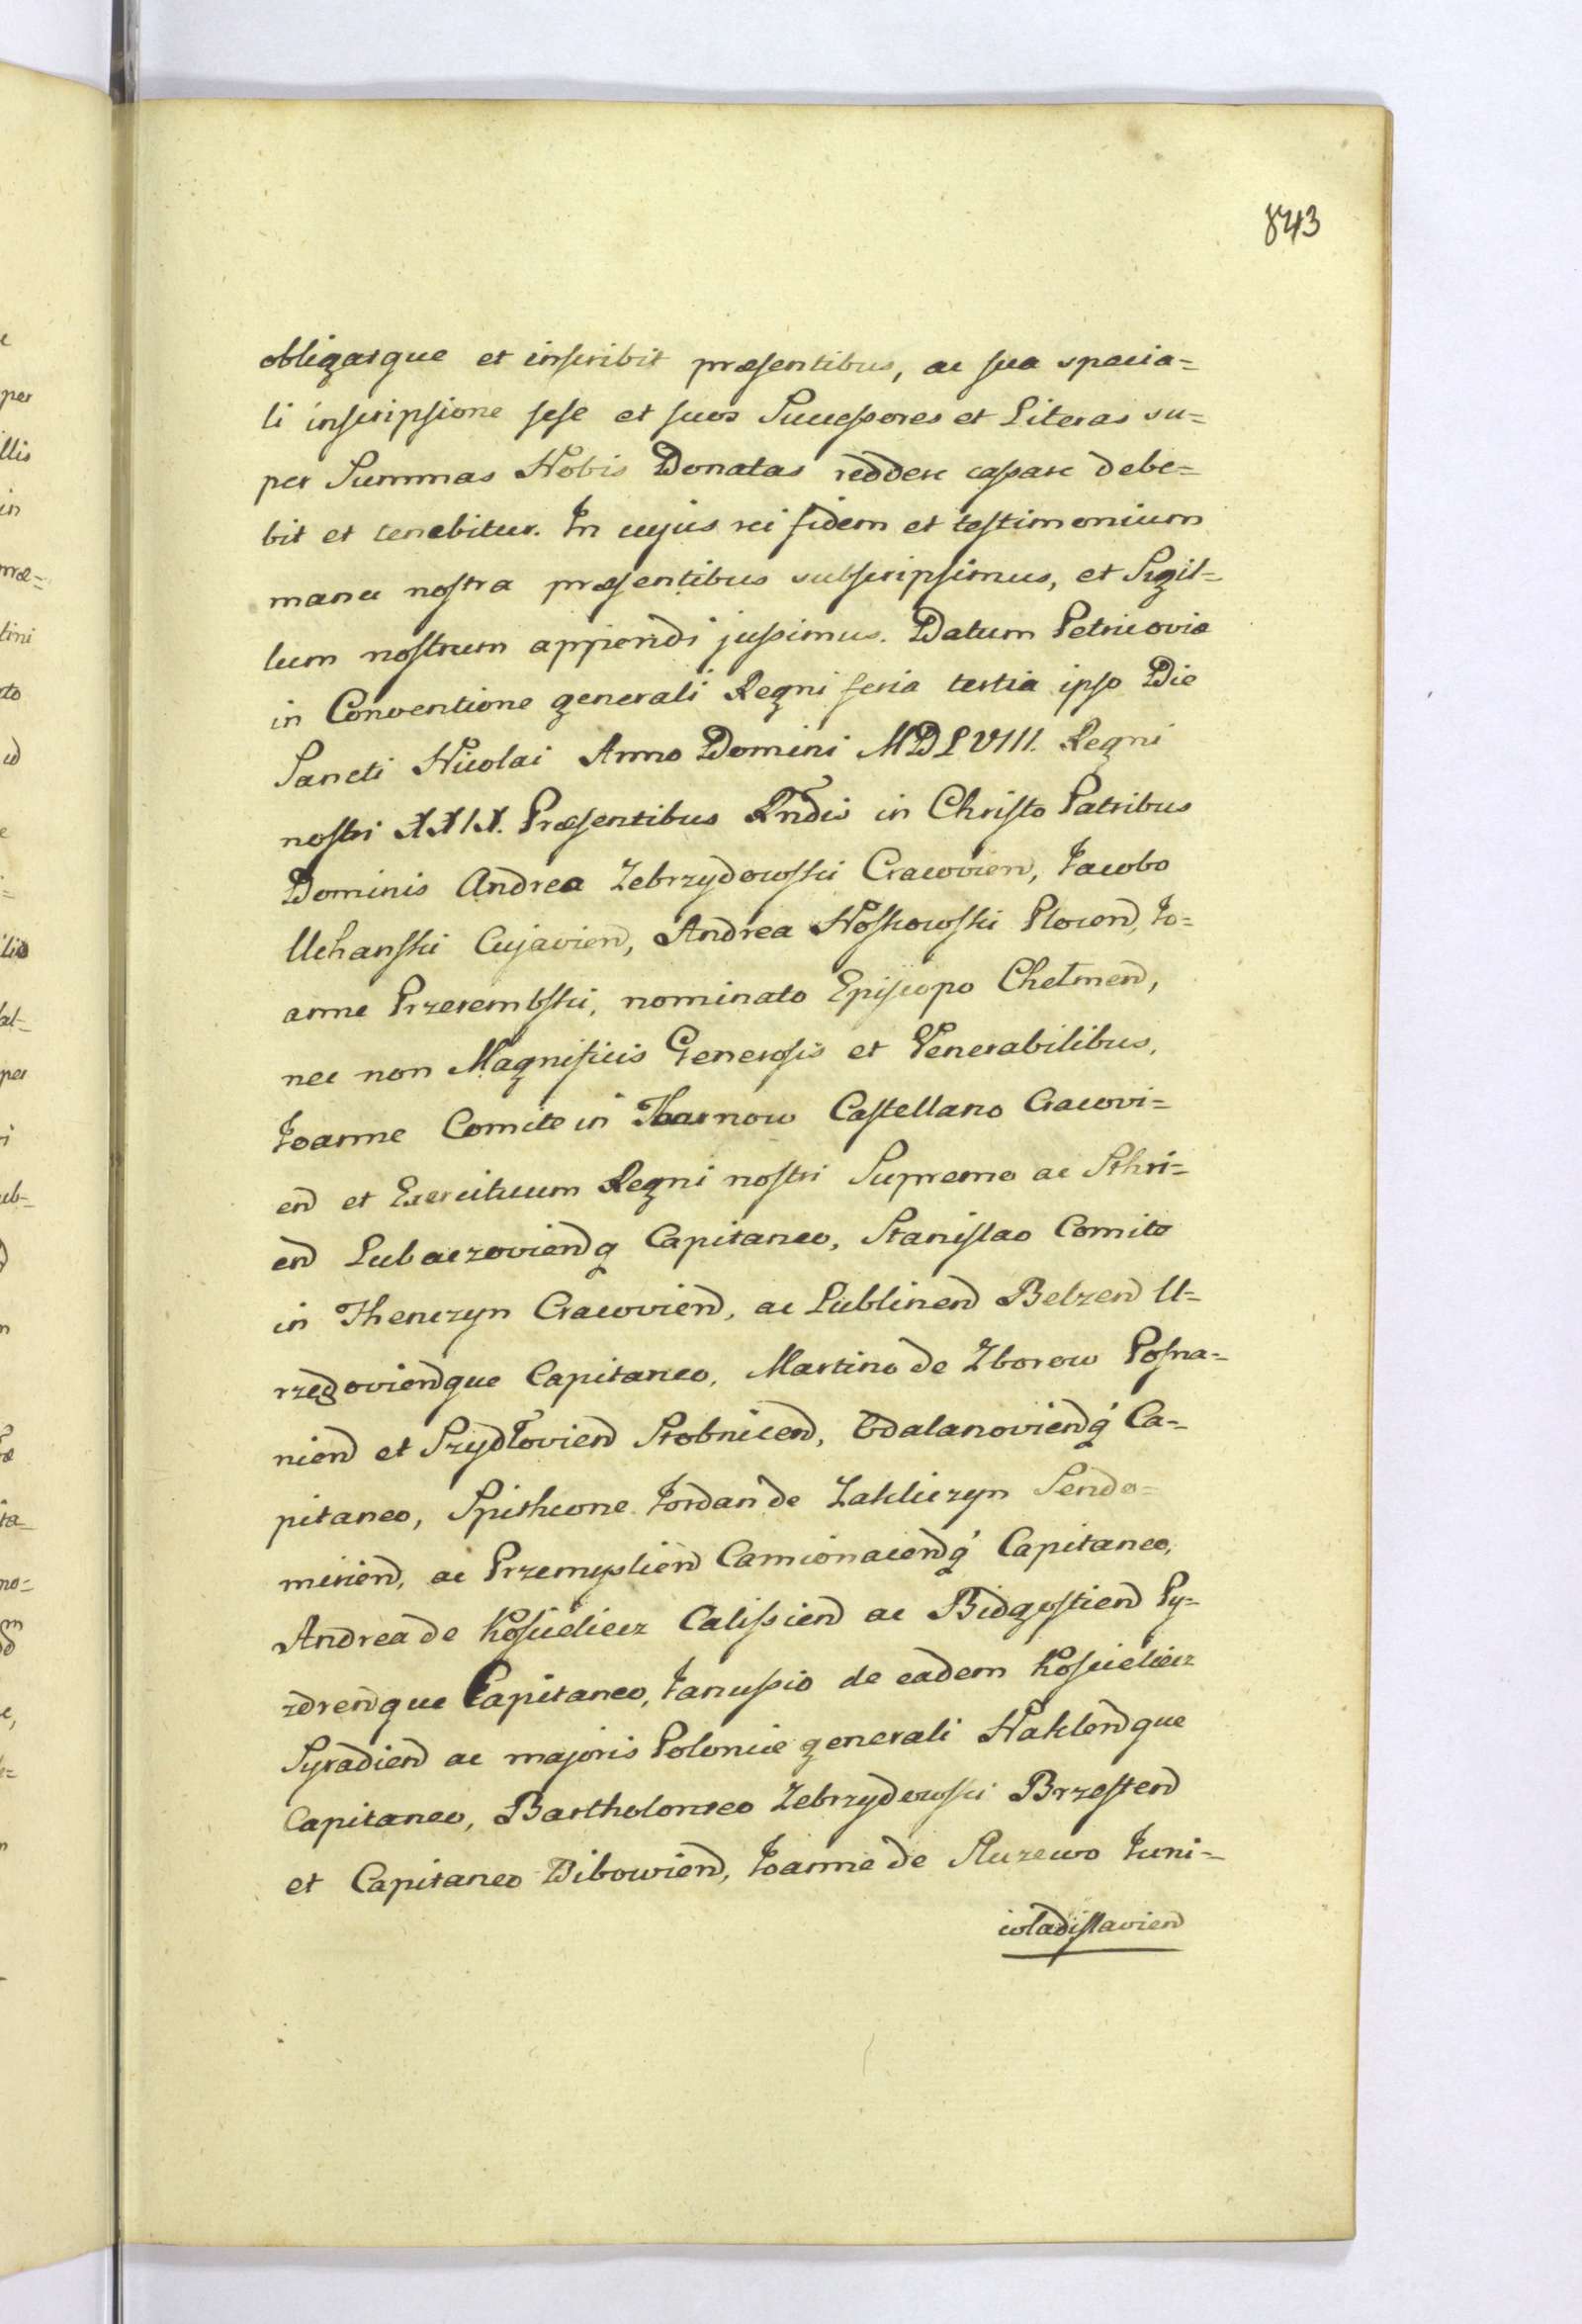 843
obligatque et inscribit præsentibus, ac sua specia=
li inscripsione sese et suos Successores et Literas su=
per Summas Nobis Donatas reddere cassare debe=
bit et tenebitur. In cujus rei fidem et testimonium
manu nostra præsentibus subscripsimus, et Sigil=
lum nostrum appendi jussimus. Datum Petricoviæ
in Conventione generali Regni feria tertia ipso Die
Sancti Nicolai Anno Domini MDLVIII. Regni
nostri XXIX. Præsentibus Rndis in Christo Patribus
Dominis Andrea Zebrzydowski Cracovien, Jacobo
Uchanski Cujavien, Andrea Noskowski Plocen, Jo=
anne Przerembski, nominato Episcopo Chełmen,
nec non Magnificis Generosis et Venerabilibus,
Joanne Comite in Tharnow Castellano Cracovi=
en et Exercituum Regni nostri Supremo ac Sthri=
en Lubaczovienq Capitaneo, Stanislao Comite
in Thenczyn Cracovien, ac Lublinen Belzen U=
rzędoviendque Capitaneo, Martino de Zborow Posna=
nien et Szydłovien Stobnicen, Odalanovienq Ca=
pitaneo, Spithkone Jordan de Zakliczyn Sendo=
mirien, ac Przemyslien Camionacenq Capitaneo,
Andrea de Koscieliecz Calissien ac Bidgostien Py=
zdrenque Capitaneo, Janussio de eadem Koscieliecz
Syradien ac majoris Poloniæ generali Naklenque
Capitaneo, Bartholomeo Zebrzydowski Brzesten
et Capitaneo Dibowien, Joanne de Sluzewo Juni=
wladislavien